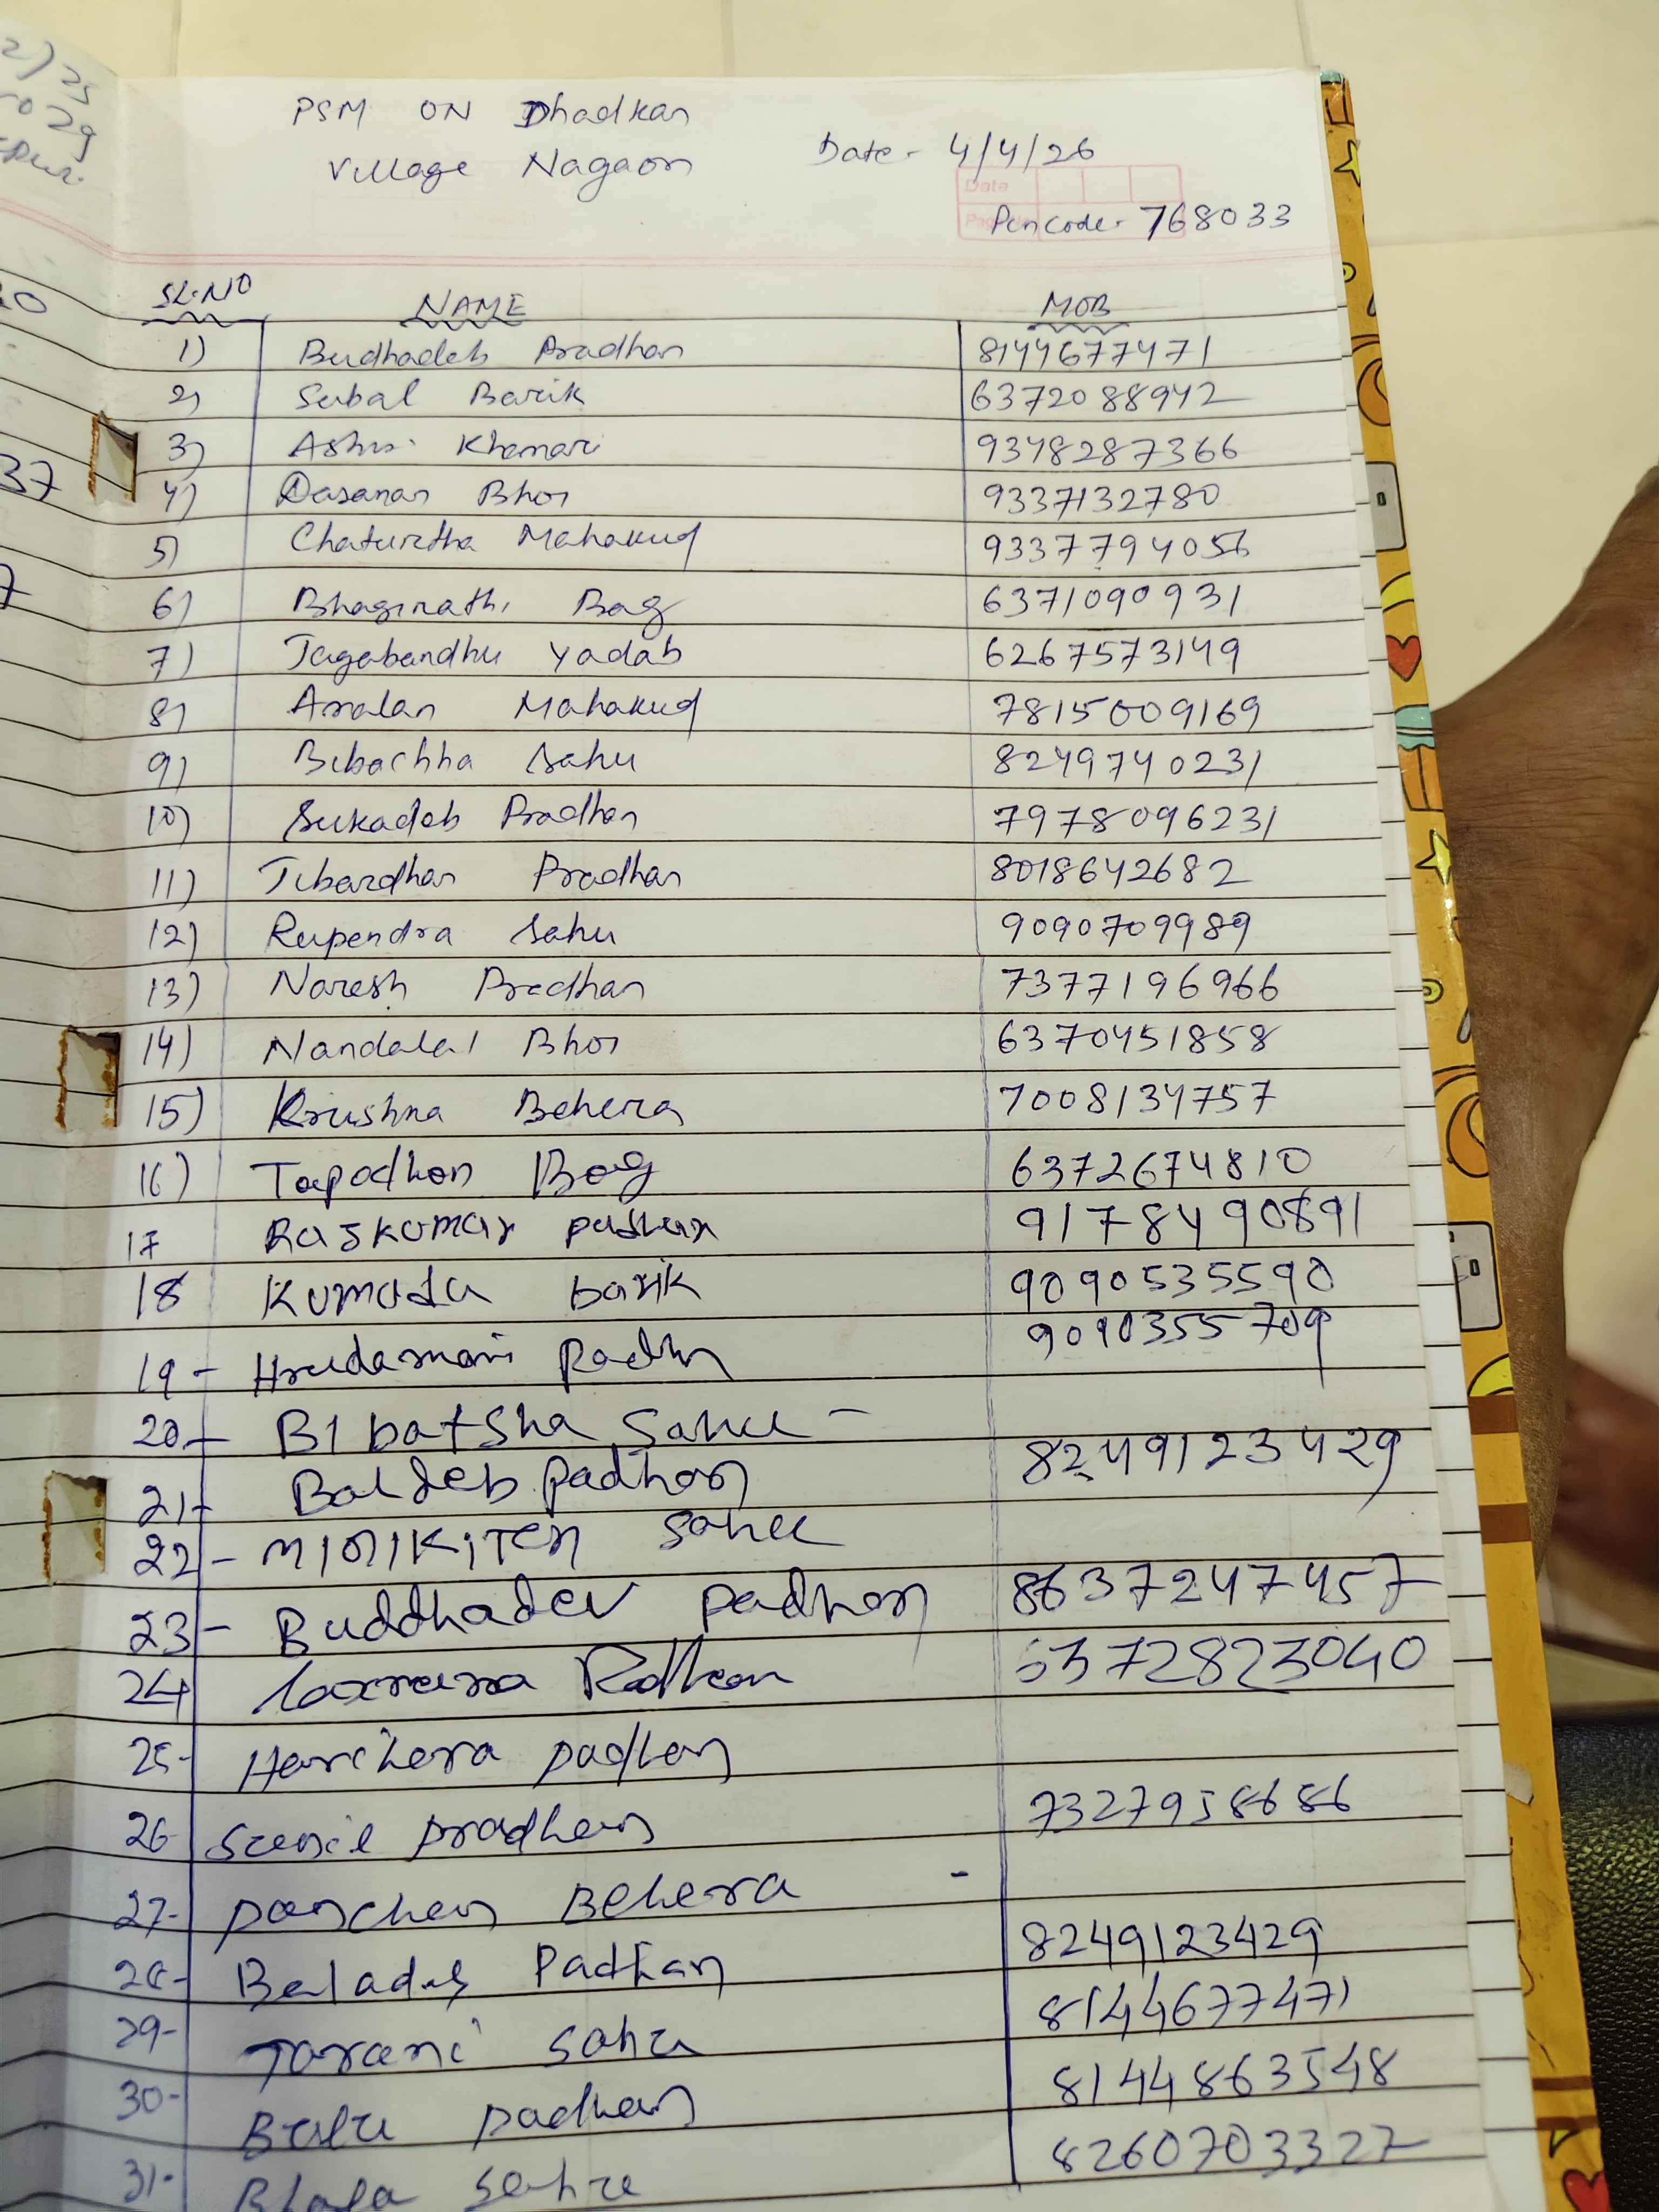 PSM ON Dhadkan
Village Nagaon Date- 4/4/26
Date
Pincode- 768033
SL.NO NAME MOB
1) Budhadeb Pradhan 8144677471
2) Subal Barik 6372088942
3) Ashis Khamari 9348287366
4) Dasanan Bhoi 9337132780
5) Chaturtha Mahakud 9337794056
6) Bhagirathi Bag 6371090931
7) Jagabandhu Yadab 6267573149
8) Amalan Mahakud 7815009169
9) Bibachha Sahu 8249740231
10) Sukadeb Pradhan 7978096231
11) Jibardhan Pradhan 8018642682
12) Rupendra Sahu 9090709989
13) Naresh Pradhan 7377196966
14) Nandalal Bhoi 6370451858
15) Krushna Behera 7008134757
16) Tapodhan Bag 6372674810
17 Rajkumar padhan 9178490891
18 Kumada barik 9090535590
19- Hrudamani Padhan 9090355709
20- Bibatsha Sahu -
21- Baldeb Padhan 8249123429
22- MINIKITEN Sahu
23- Buddhadev padhan 8637247457
24 Laxmana Padhan 6372823040
25- Harihara padhan
26- Sunil pradhan 7327958686
27- panchan Behera -
28- Baladeb Padhan 8249123429
29- Tarani Sahu 8144677471
30- Balu padhan 8144863548
31- Sahu 8260703327